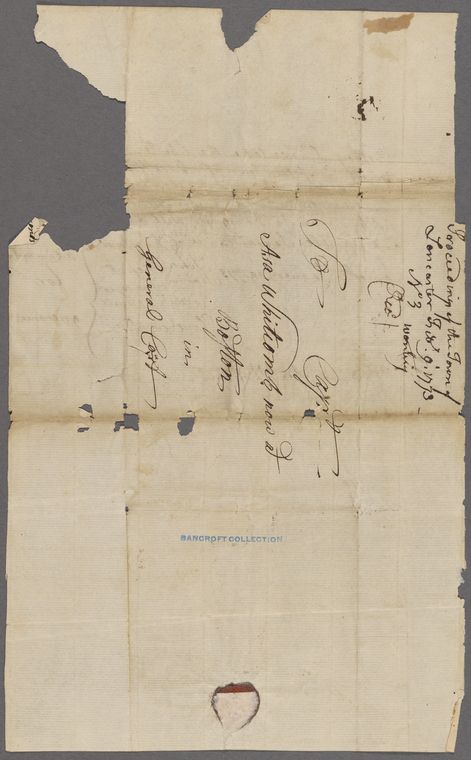 Proceedings of the Town of
Lancaster Feb. 9. 1773
No 3
To Capt
Asa Whitcomb now at
Boston
in
General Cort
BANCROFT COLLECTION